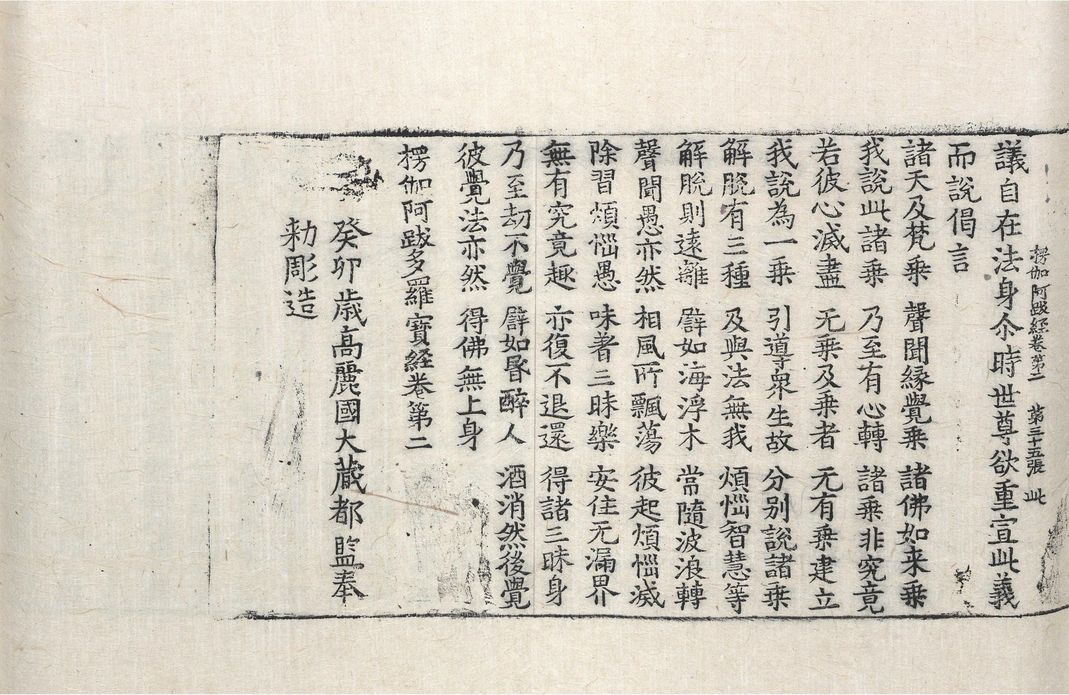 楞伽阿跋経卷第二 第三十五張 此
議自在法身尒時世尊欲重宣此義
而說偈言
諸天及梵乗 聲聞縁覺乗 諸佛如来乗
我說此諸乗 乃至有心轉 諸乗非究竟
若彼心滅盡 无乗及乗者 无有乗建立
我說為一乗 引導衆生故 分別說諸乗
解脫有三種 及與法無我 煩惱智慧等
解脫則遠離 譬如海浮木 常隨波浪轉
聲聞愚亦然 相風所飄蕩 彼起煩惱滅
除習煩惱愚 味著三昧樂 安住无漏界
無有究竟趣 亦復不退還 得諸三昧身
乃至劫不覺 譬如昬醉人 酒消然後覺
彼覺法亦然 得佛無上身
楞伽阿跋多羅寶経卷第二
癸卯歳高麗國大藏都監奉
勑彫造